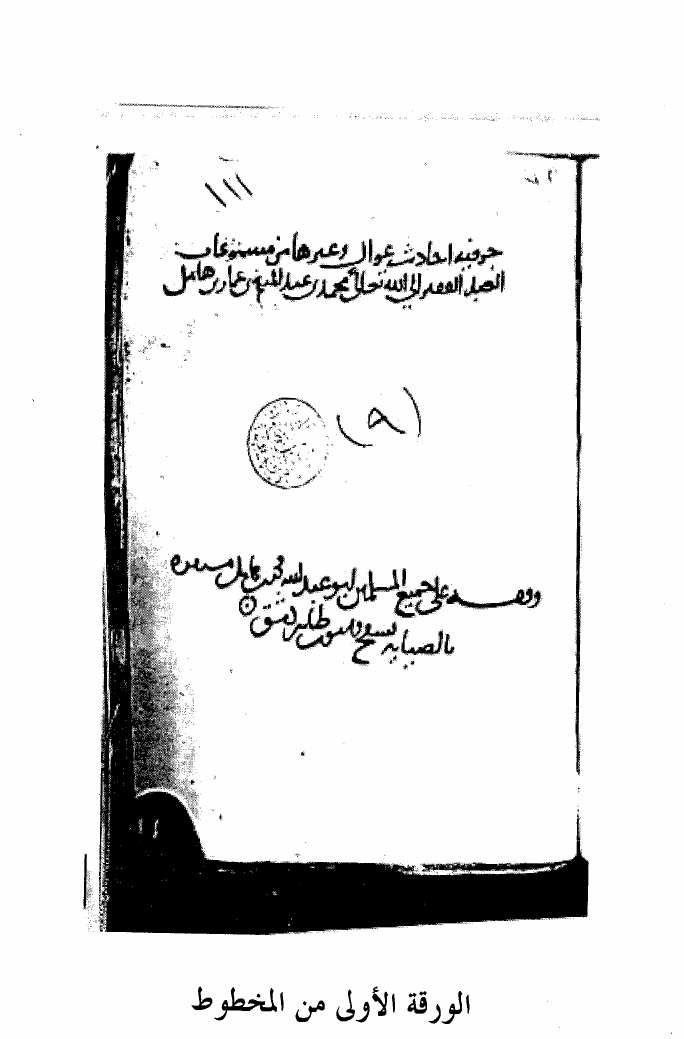 ١١١
جزء فيه احاديث عوال وغيرها من مسموعات
العبد الفقير الى الله تعالى محمد بن عبد المنعم بن عمار بن هامل
(٩)
وقفه على جميع المسلمين ابو عبد الله بن هامل
بالضيائية بسفح قاسيون ظاهر دمشق
الورقة الأولى من المخطوط